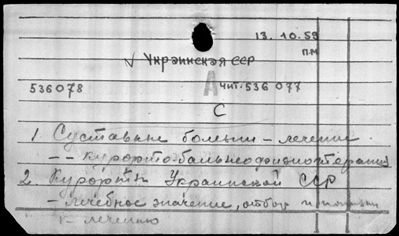 13.10.59
пм
√ Украинская ССР
536078 А чит. 536077
С
1 Суставные болезни - лечение
-- курорто-бальнеофизиотерапия
2. Курорты Украинской ССР
- лечебное значение, отбор и
к лечению